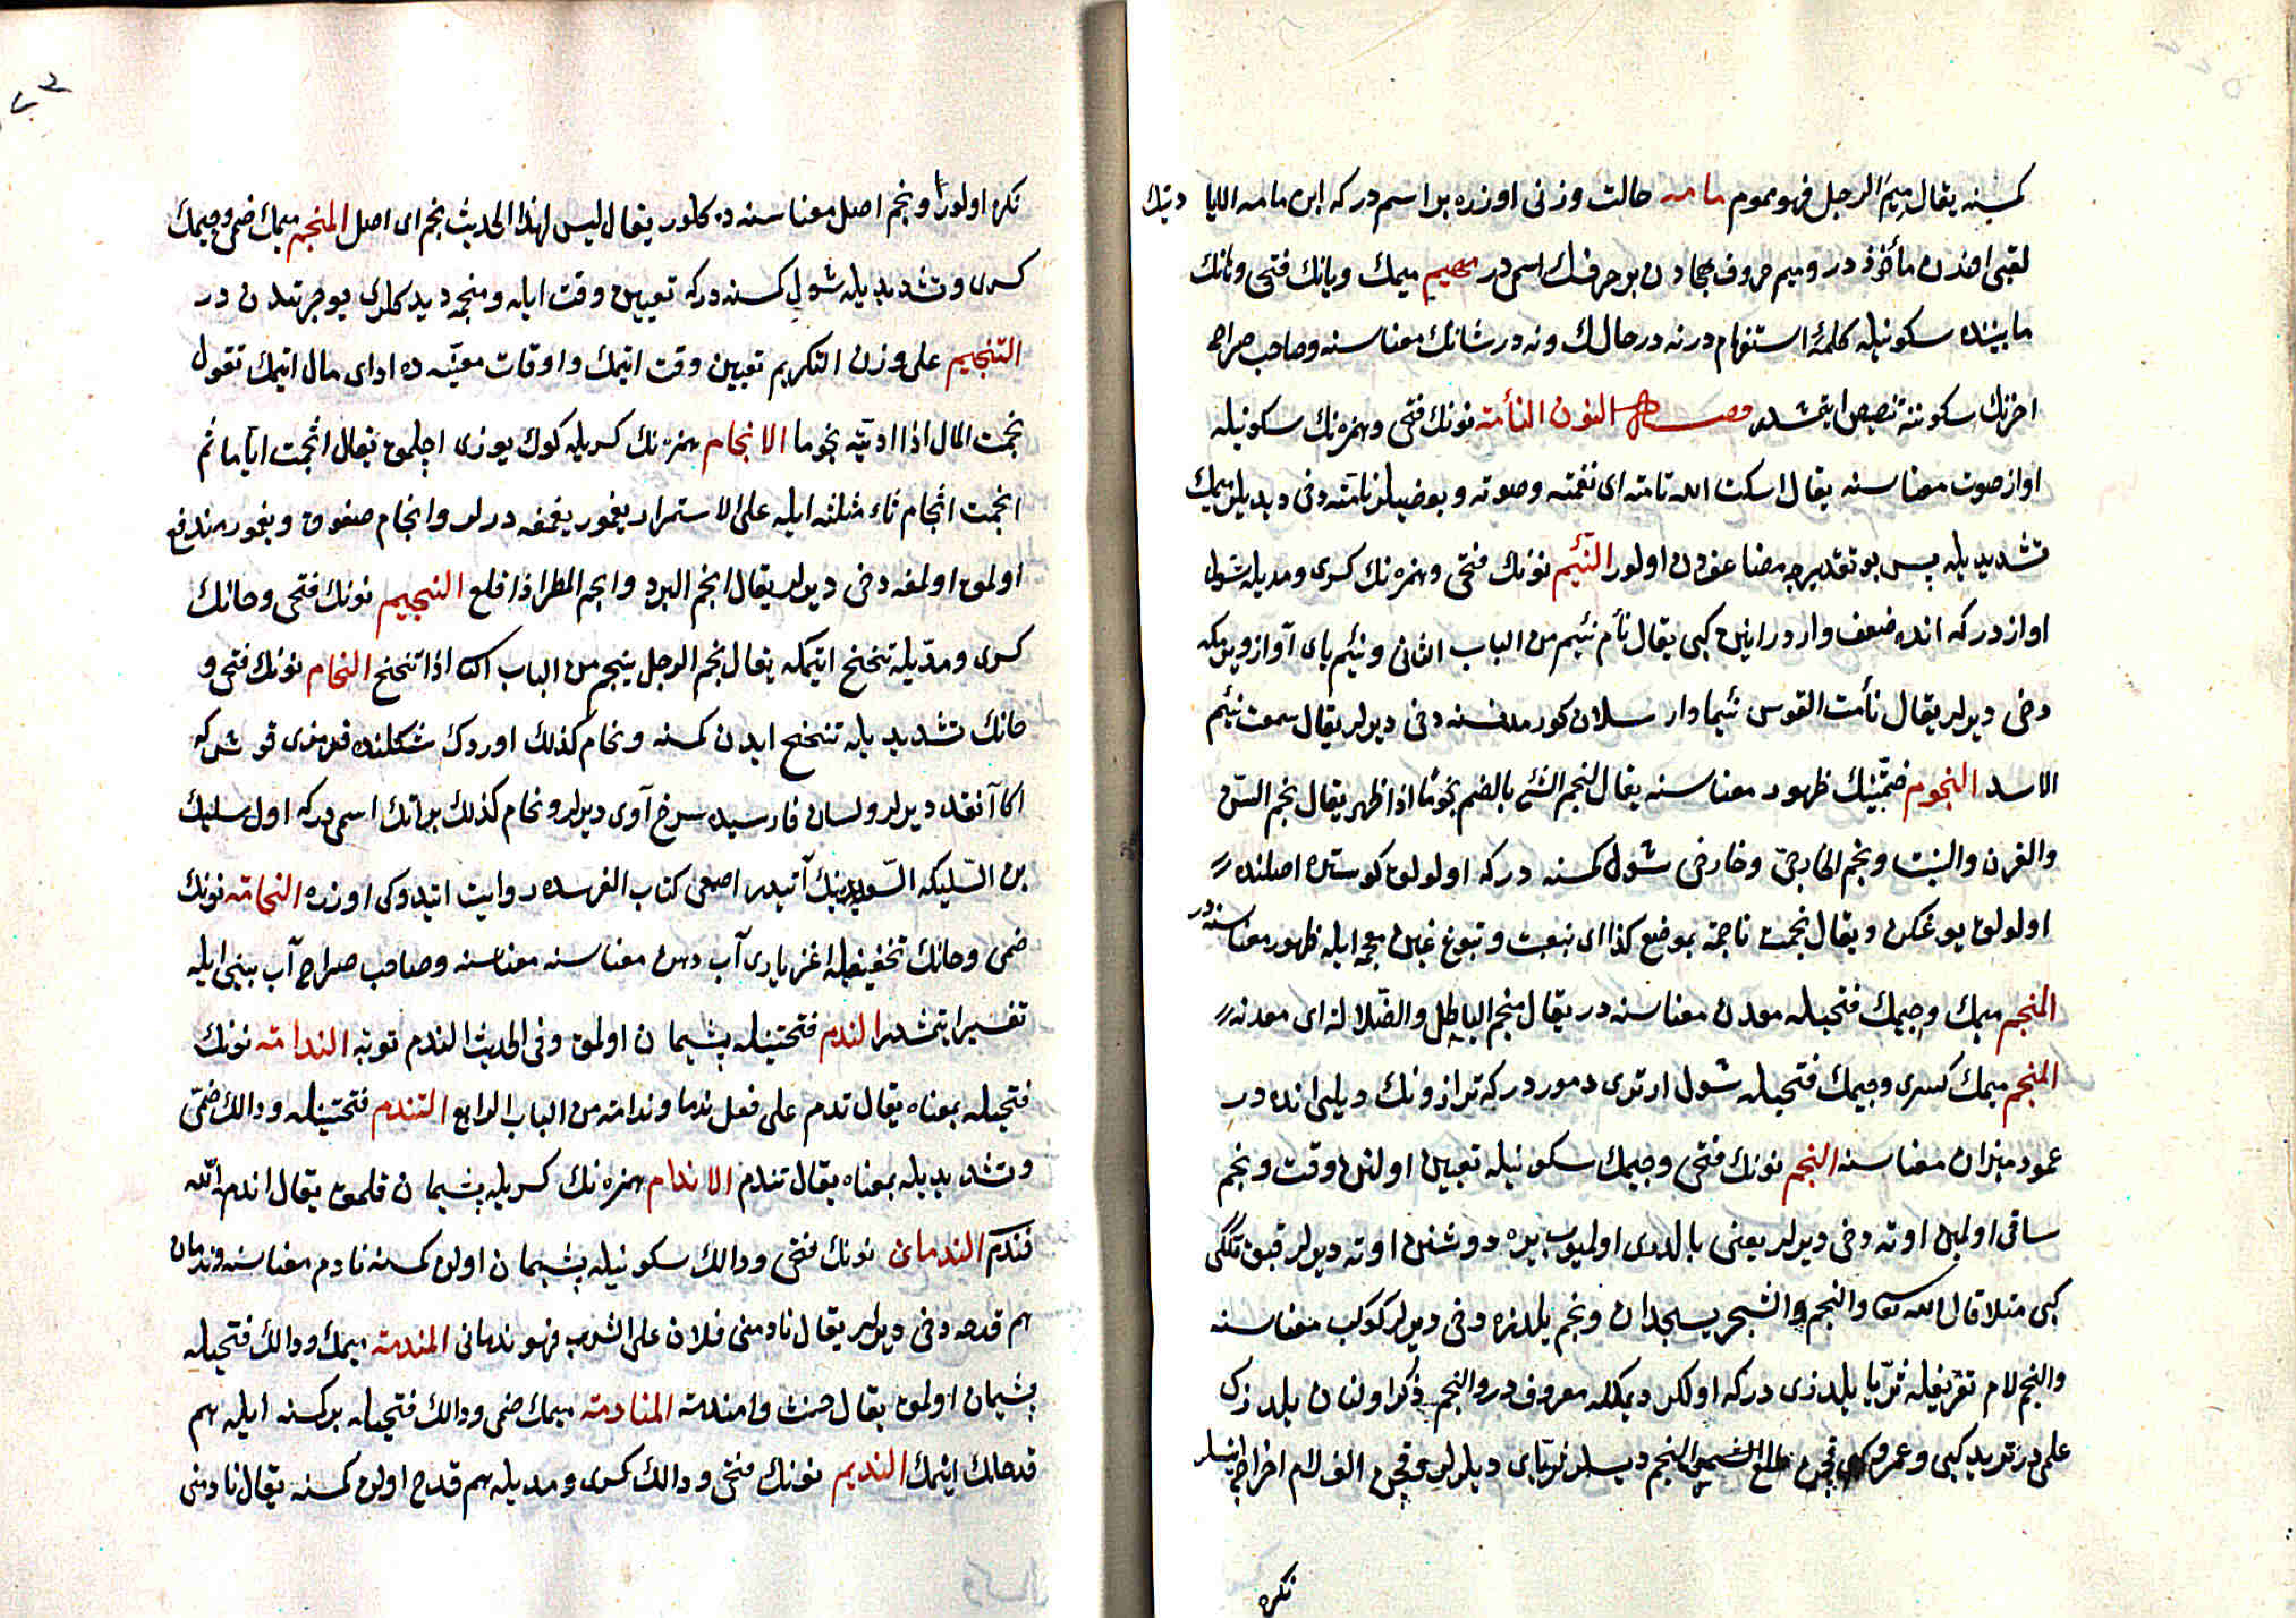 كمسنه يقال ميم الرجل فهو مموم مامه حالت وزنى اوزره بر اسمدر كه ابن مامه الايا دينك
لقبى اوندن مأخوذدر وميم حروف هجادن بر حرفك اسمى در مهيم ميمك ويانك فتحى وهانك
مابيننده سكونيله كلمۀ استفهام در نه در حالك ونه در شانك معناسنه وصاحب صراح
اخرنك سكوننه تنصيص ايتمشدر فصل النون النأمة نونك فتحى وهمزه نك سكونيله
اواز صوت معناسنه يقال اسكت الله نامته اى نغمته وصوته وبعضيلر نامته دخى ديديلر ميمك
تشديديله پس بو تقديرجه مضاعفدن اولور النئيم نونك فتحى وهمزه نك كسرى ومديله شول
اوازدر كه انده ضعف واردر انين كبى يقال نأم ينئم من الباب الثانى ونئيم ياى آوازى ويرمكه
دخى ديرلر يقال نأمت القوس نئيما وارسلان كورمدسنه دخى ديرلر يقال سمعت نئيم
الاسد النجوم ضمتينك ظهور معناسنه يقال نجم الشئ بالضم نجوما اذا ظهر يقال نجم السن
والقرن والنبت ونجم الخارجى وخارجى شول كمسنه در كه اولولق كوستره اصلنده
اولولق يوغكن ويقال نجمت ناجمة بموضع كذا اى نبغت ونبوغ غين معجمه ايله ظهور معناسنه در
المنجم ميمك وجيمك فتحيله معدن معناسنه در يقال منجم الباطل والضلالة اى معدنه
المنجم ميمك كسرى وجيمك فتحيله شول ارتورى دموردر كه ترازونك ديلى انده در
عمود ميزان معناسنه النجم نونك فتحى وجيمك سكونيله تعيين اولنن وقت ونجم
ساقى اولمين اوته دخى ديرلر يعنى بالدرى اولميوب يره دوشنن اوته ديرلر قبق تكگى
كبى مثلا قال الله تعا والنجم والشجر يسجدان ونجم يلدزه دخى ديرلر كوكب معناسنه
والنجم لام تعريفله ثريا يلدزى در كه اولكر ديمكله معروفدر والنجم ذكر اولنان يلدزك
علمى در زيد كبى وعمرو كبى قچن طلع النجم ديسلر ثرياى ديلرلر وقچن الف لام اخراج ايتسلر
نكره
نكره اولور ونجم اصل معناسنه ده كلور يقال ليس لهذا الحديث نجم اى اصل المنجم ميمك ضمى وجيمك
كسرى وتشديديله شول كمسنه در كه تعيين وقت ايله ومنجمه ديدكلرى بو جهتدن در
التنجيم على وزن التكريم تعيين وقت اتيمك واوقات معينه ده اداى مال اتيمك تقول
نجمت المال اذا اديته نجوما الانجام همزه نك كسريله كوك يوزى اچلمق يقال اثجمت اياما ثم
انجمت اثجام ثاء مثلثه ايله على الاستمرار يغمور يغمغه درلر وانجام صغوق ويغمور مندفع
اولمق اولمغه دخى ديرلر يقال انجم البرد وانجم المطر اذا اقلع النحيم نونك فتحى وحانك
كسرى ومديله تنحنح ايتمكه يقال نحم الرجل ينحم من الباب الثا اذا تنحنح النحام نونك فتحى و
حانك تشديديله تنحنح ايدن كمسنه ونحام كذلك اوردك شكلنده قرمزى قوشدركه
اكا آنقد ديرلر ولسان فارسيده سرخ آوى ديرلر ونحام كذلك بر اتك اسمى در كه اول سليك
بن السليكه السويدينك آتيدر اصمعى كتاب الفرسده روايت ايتدوكى اوزره النخامة نونك
ضمى وخانك تخفيفيله اغز يارى آب دهن معناسنه معناسنه وصاحب صراح آب بينى ايله
تفسير ايتمشدر الندم فتحتينله پشيمان اولمق وفى الحديث الندم توبة الندامة نونك
فتحيله بمعناه يقال ندم على فعل ندما وندامة من الباب الرابع التندم فتحتينله ودالك ضمى
وتشديديله بمعناه يقال تندم الاندام همزه نك كسريله پشيمان قلمق يقال اندم الله
فندم الندمان نونك فتحى ودالك سكونيله پشيمان اولن كمسنه نادم معناسنه وندمان
هم قدحه دخى ديرلر يقال نادمنى فلان على الشرب فهو ندمانى المندمة ميمك ودالك فتحيله
پشيمان اولمق يقال حنث وامندمة المنادمة ميمك ضمى ودالك فتحيله بر كمسنه ايله هم
قدحلك ايتمك النديم نونك فتحى ودالك كسرى ومديله هم قدح اولن كمسنه يقال نادمنى